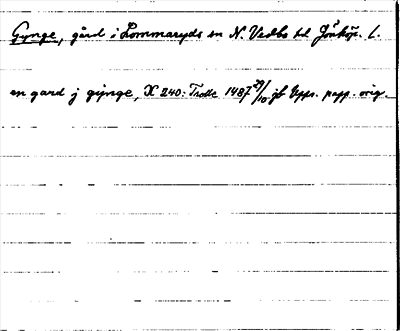 Gynge, gård i Lommaryds sn N. Vedbo hd Jönköp. l.
en gard j gynge, X 240: Trolle 1487 29/10 jb Upps. papp. orig.